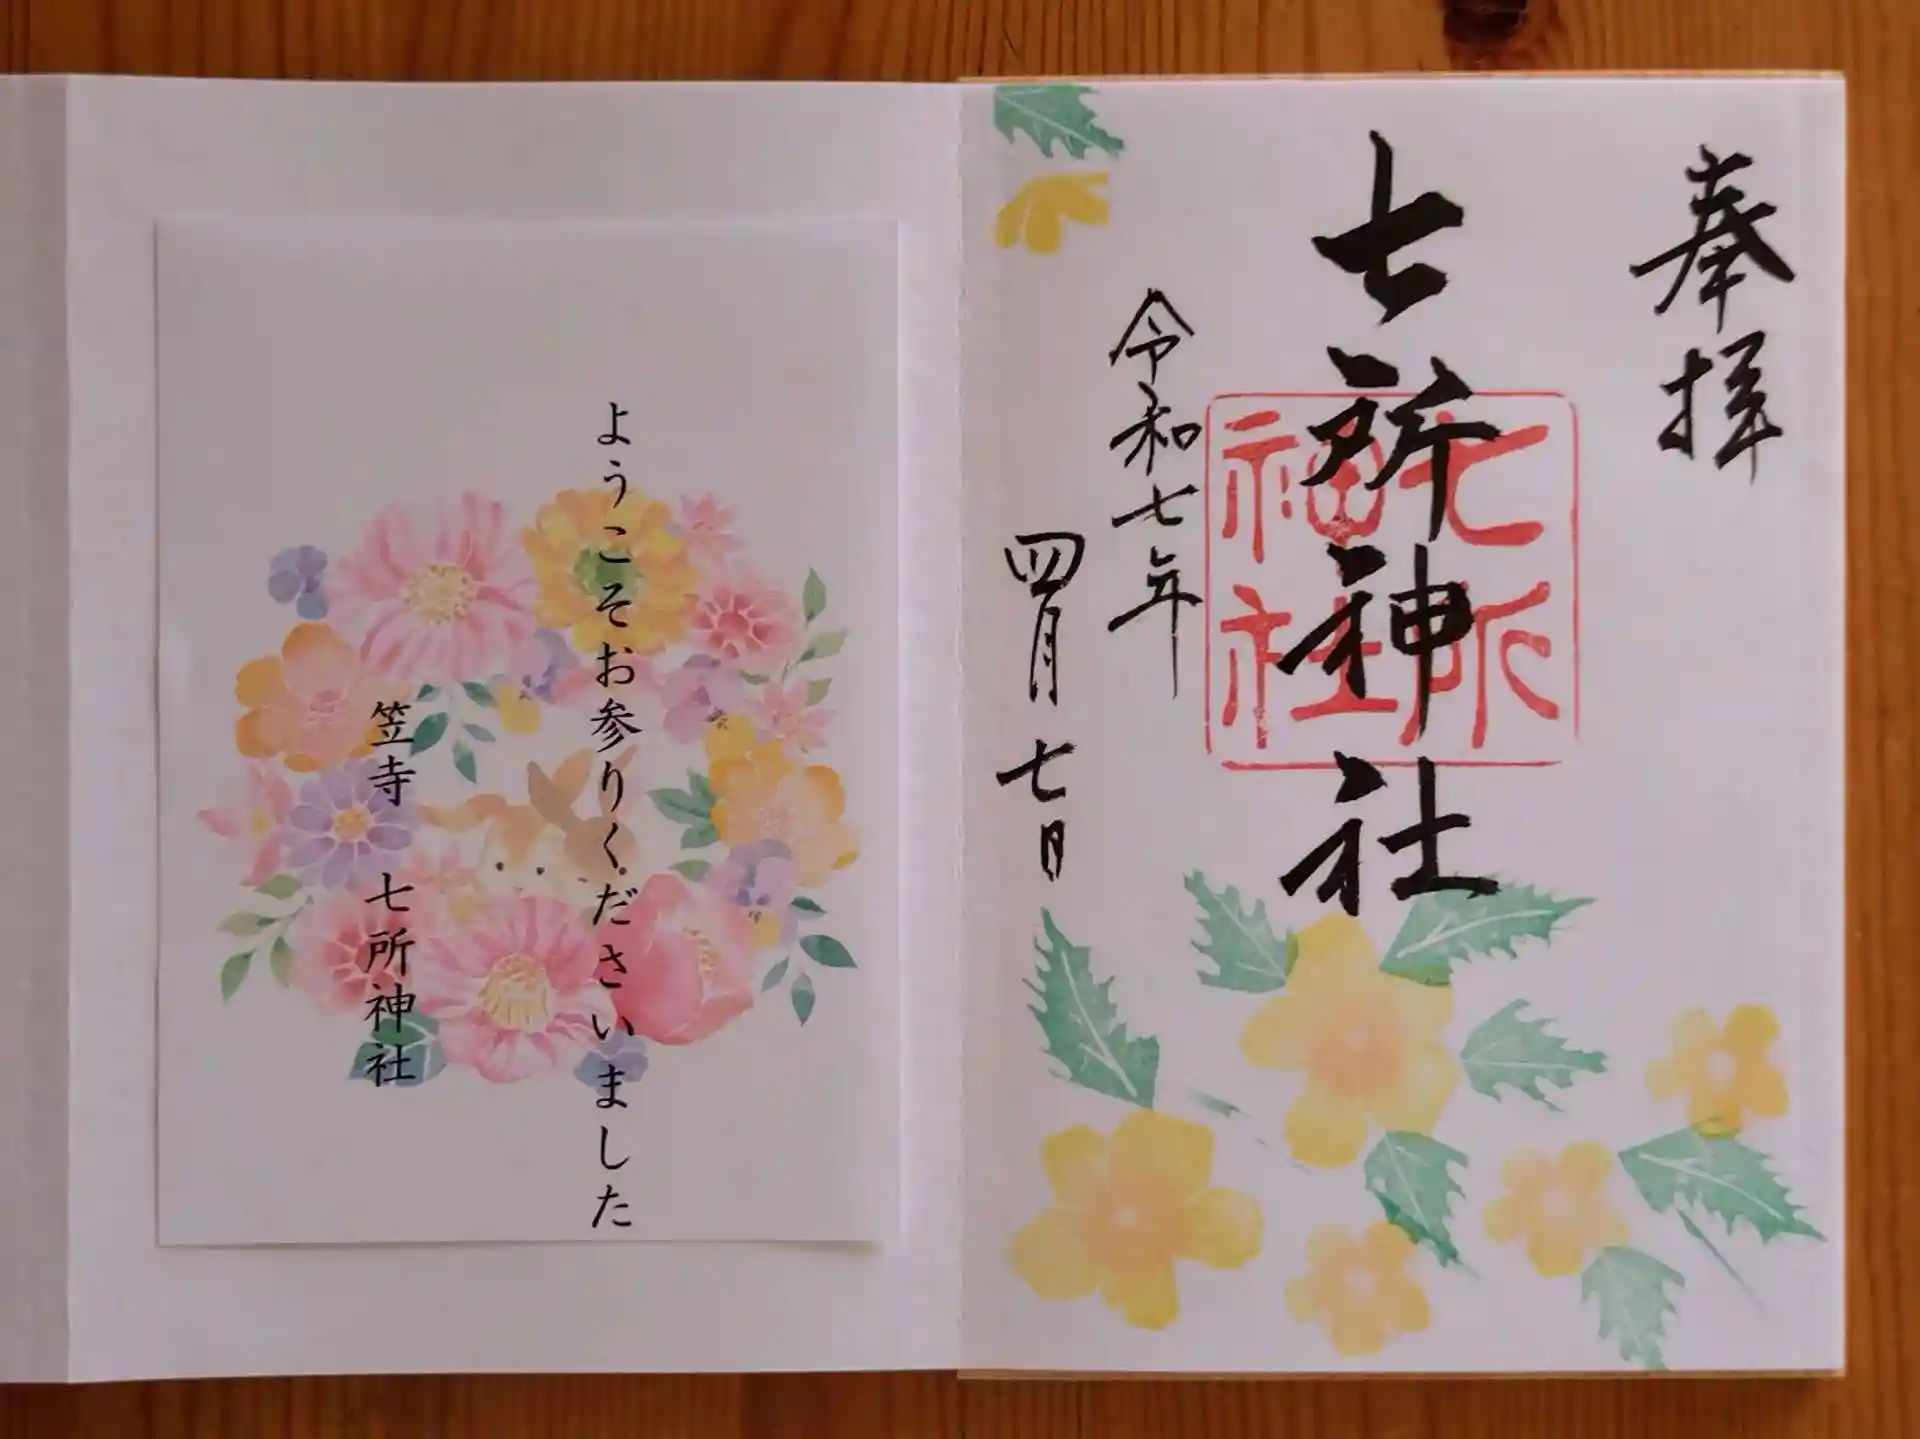 奉拝
七所神社
七所
神社
令和七年
四月七日
ようこそお参りくださいました
笠寺 七所神社